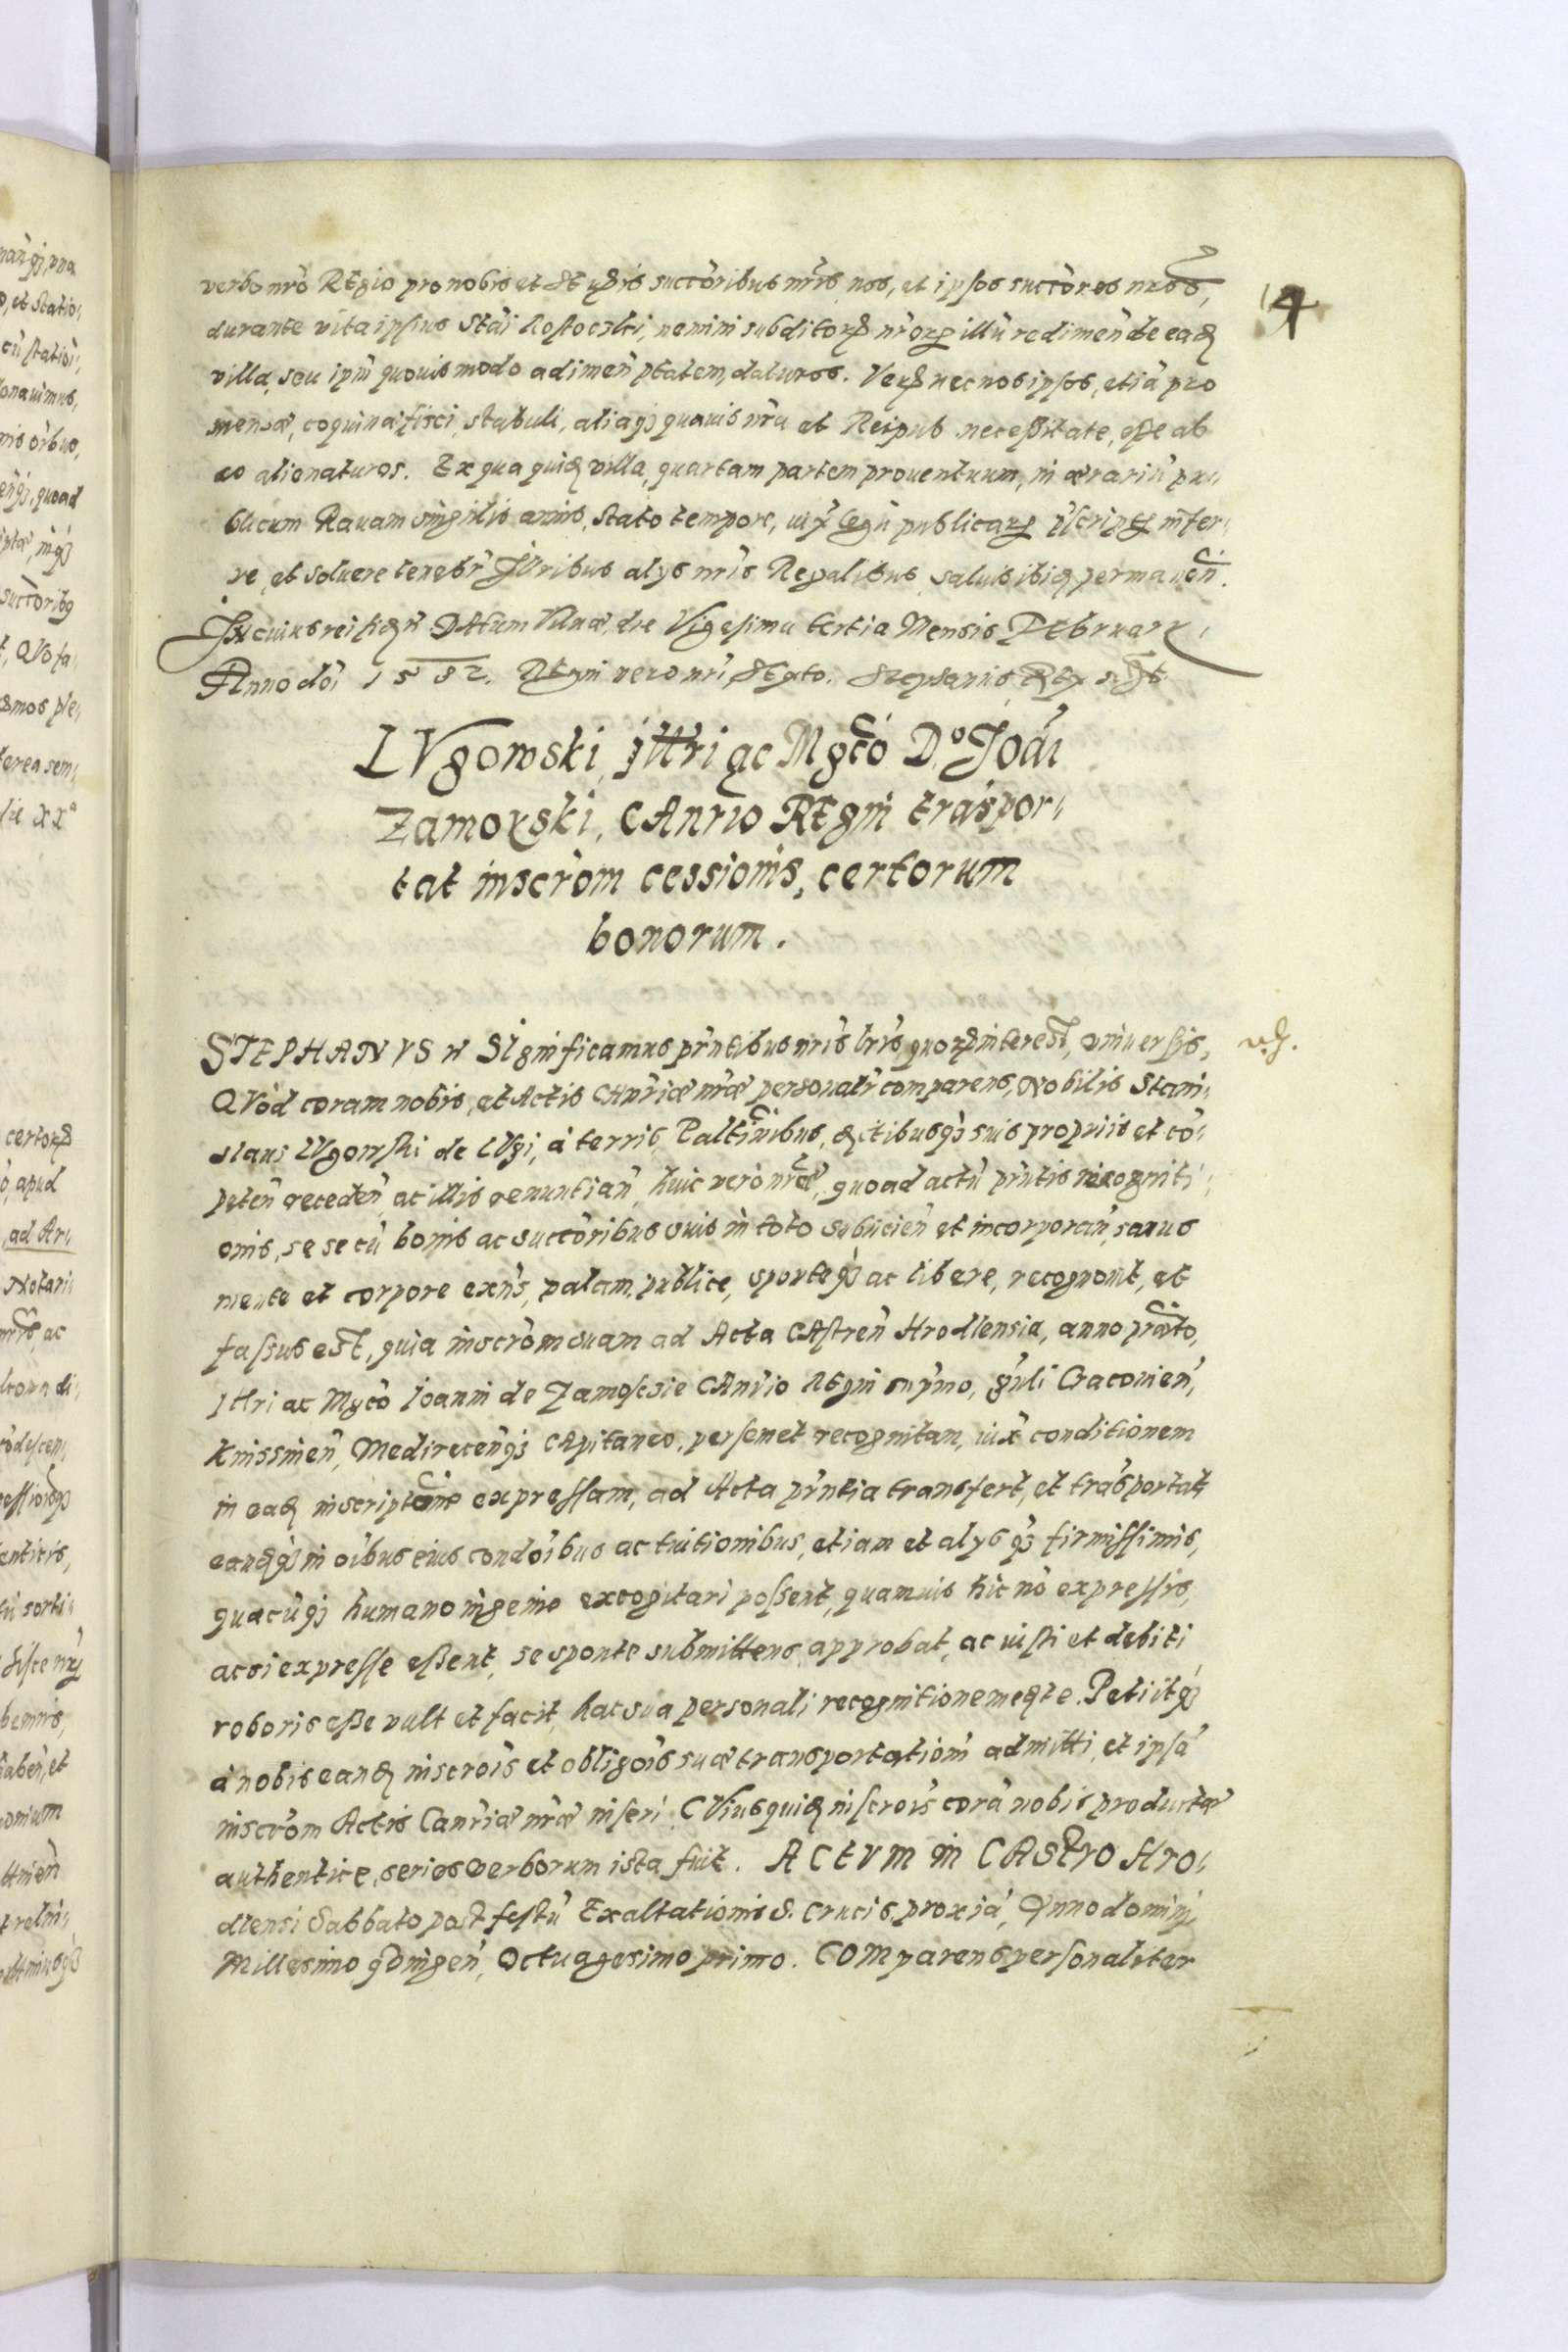 4
verbo nro REgio pro nobis et SErris succoribus nris, nos, et ipsos succores nros,
durante vita ipsius Stai Rostocski, nemini subditorꝝ nrorꝝ illū redimen̄ de eadē
villa, seu ipm̄ quouis modo adimen̄ ptatem, daturos. Verꝝ nec nos ipsos, etiā pro
mensæ, coquinæ fisci, stabuli, aliaqꝫ quauis nra et Reipub necessitate, esse ab
eo alienaturos. Ex qua quiđ villa, quartam partem prouentuum, in ærariū pu„
blicum Rauam singulis annis, stato tempore, iux̄ legū publicarꝝ pscripꝭ infer„
re, et soluere tenebr̄ JUribus alys nris Regalibus saluis ibiđ permanen̄.
IN cuius rei fiđ r̄ DAtum Vilnæ, die Vigesima tertia Mensis FEbruarÿ,
ANno doi 1582. REgni vero nri SExto. Stephanus REx sst
LVgowski, jllri ac Mgco D° Joāi
Zamoyski, CAnrio REgni traspor„
tat inscrom cessionis, certorum
bonorum.
STEPHANVS rc̄ SIgnificamus prntibus nris lris quorꝝ interest, vniuersis,
QVod coram nobis, et Actis CAnriæ nræ personalr comparens, Nobilis Stani„
slaus LVgowski de LVgi, à terris, Paltinibus, districtibusqꝫ suis proprijs et cō„
peten̄ receden̄, ac illis renuntian̄, huic vero nræ, quoad actū prntis recogniti„
onis, se se cū bonis ac succoribus suis in toto subiicien̄ et incorporan̄, sanus
mente et corpore exns, palam, publice, sponteqꝫ ac libere, recognouit, et
fassus est, quia inscrom suam ad Acta CAstren̄ Hrodlensia, anno præto,
Illri ac Mgco Joanni de Zamoscie CAnrio REgni supmo, gnli Cracouien̄,
Knissinen̄, Medirecen̄qꝫ CApitaneo, per semet recognitam, iux̄ conditionem
in eađ inscriptione expressam, ad Acta prntia transfert, et trāsportat,
eandqꝫ in oibus eius condoibus ac tuitionibus, etiam et alysqꝫ firmissimis,
quæcūqꝫ humano ingenio excogitari possent, quamuis hic nō expressis,
ac si expresse essent, se sponte submittens, approbat, ac iusti et debiti
roboris esse vult et facit, hac sua personali recognitione mediante. Petiitqꝫ
à nobis eanđ inscrois et obligois suæ transportationi admitti, et ipsā
inscrom Actis Canriæ nræ inseri. CVius quiđ inscrois corā nobis productæ
authentice, series verborum ista fuit. ACtVm in CAStro Hro„
dlensi Sabbato post festū Exaltationis S. Crucis proxiā, Anno domini
Millesimo qdingen̄, Octuagesimo primo. COMparens personaliter